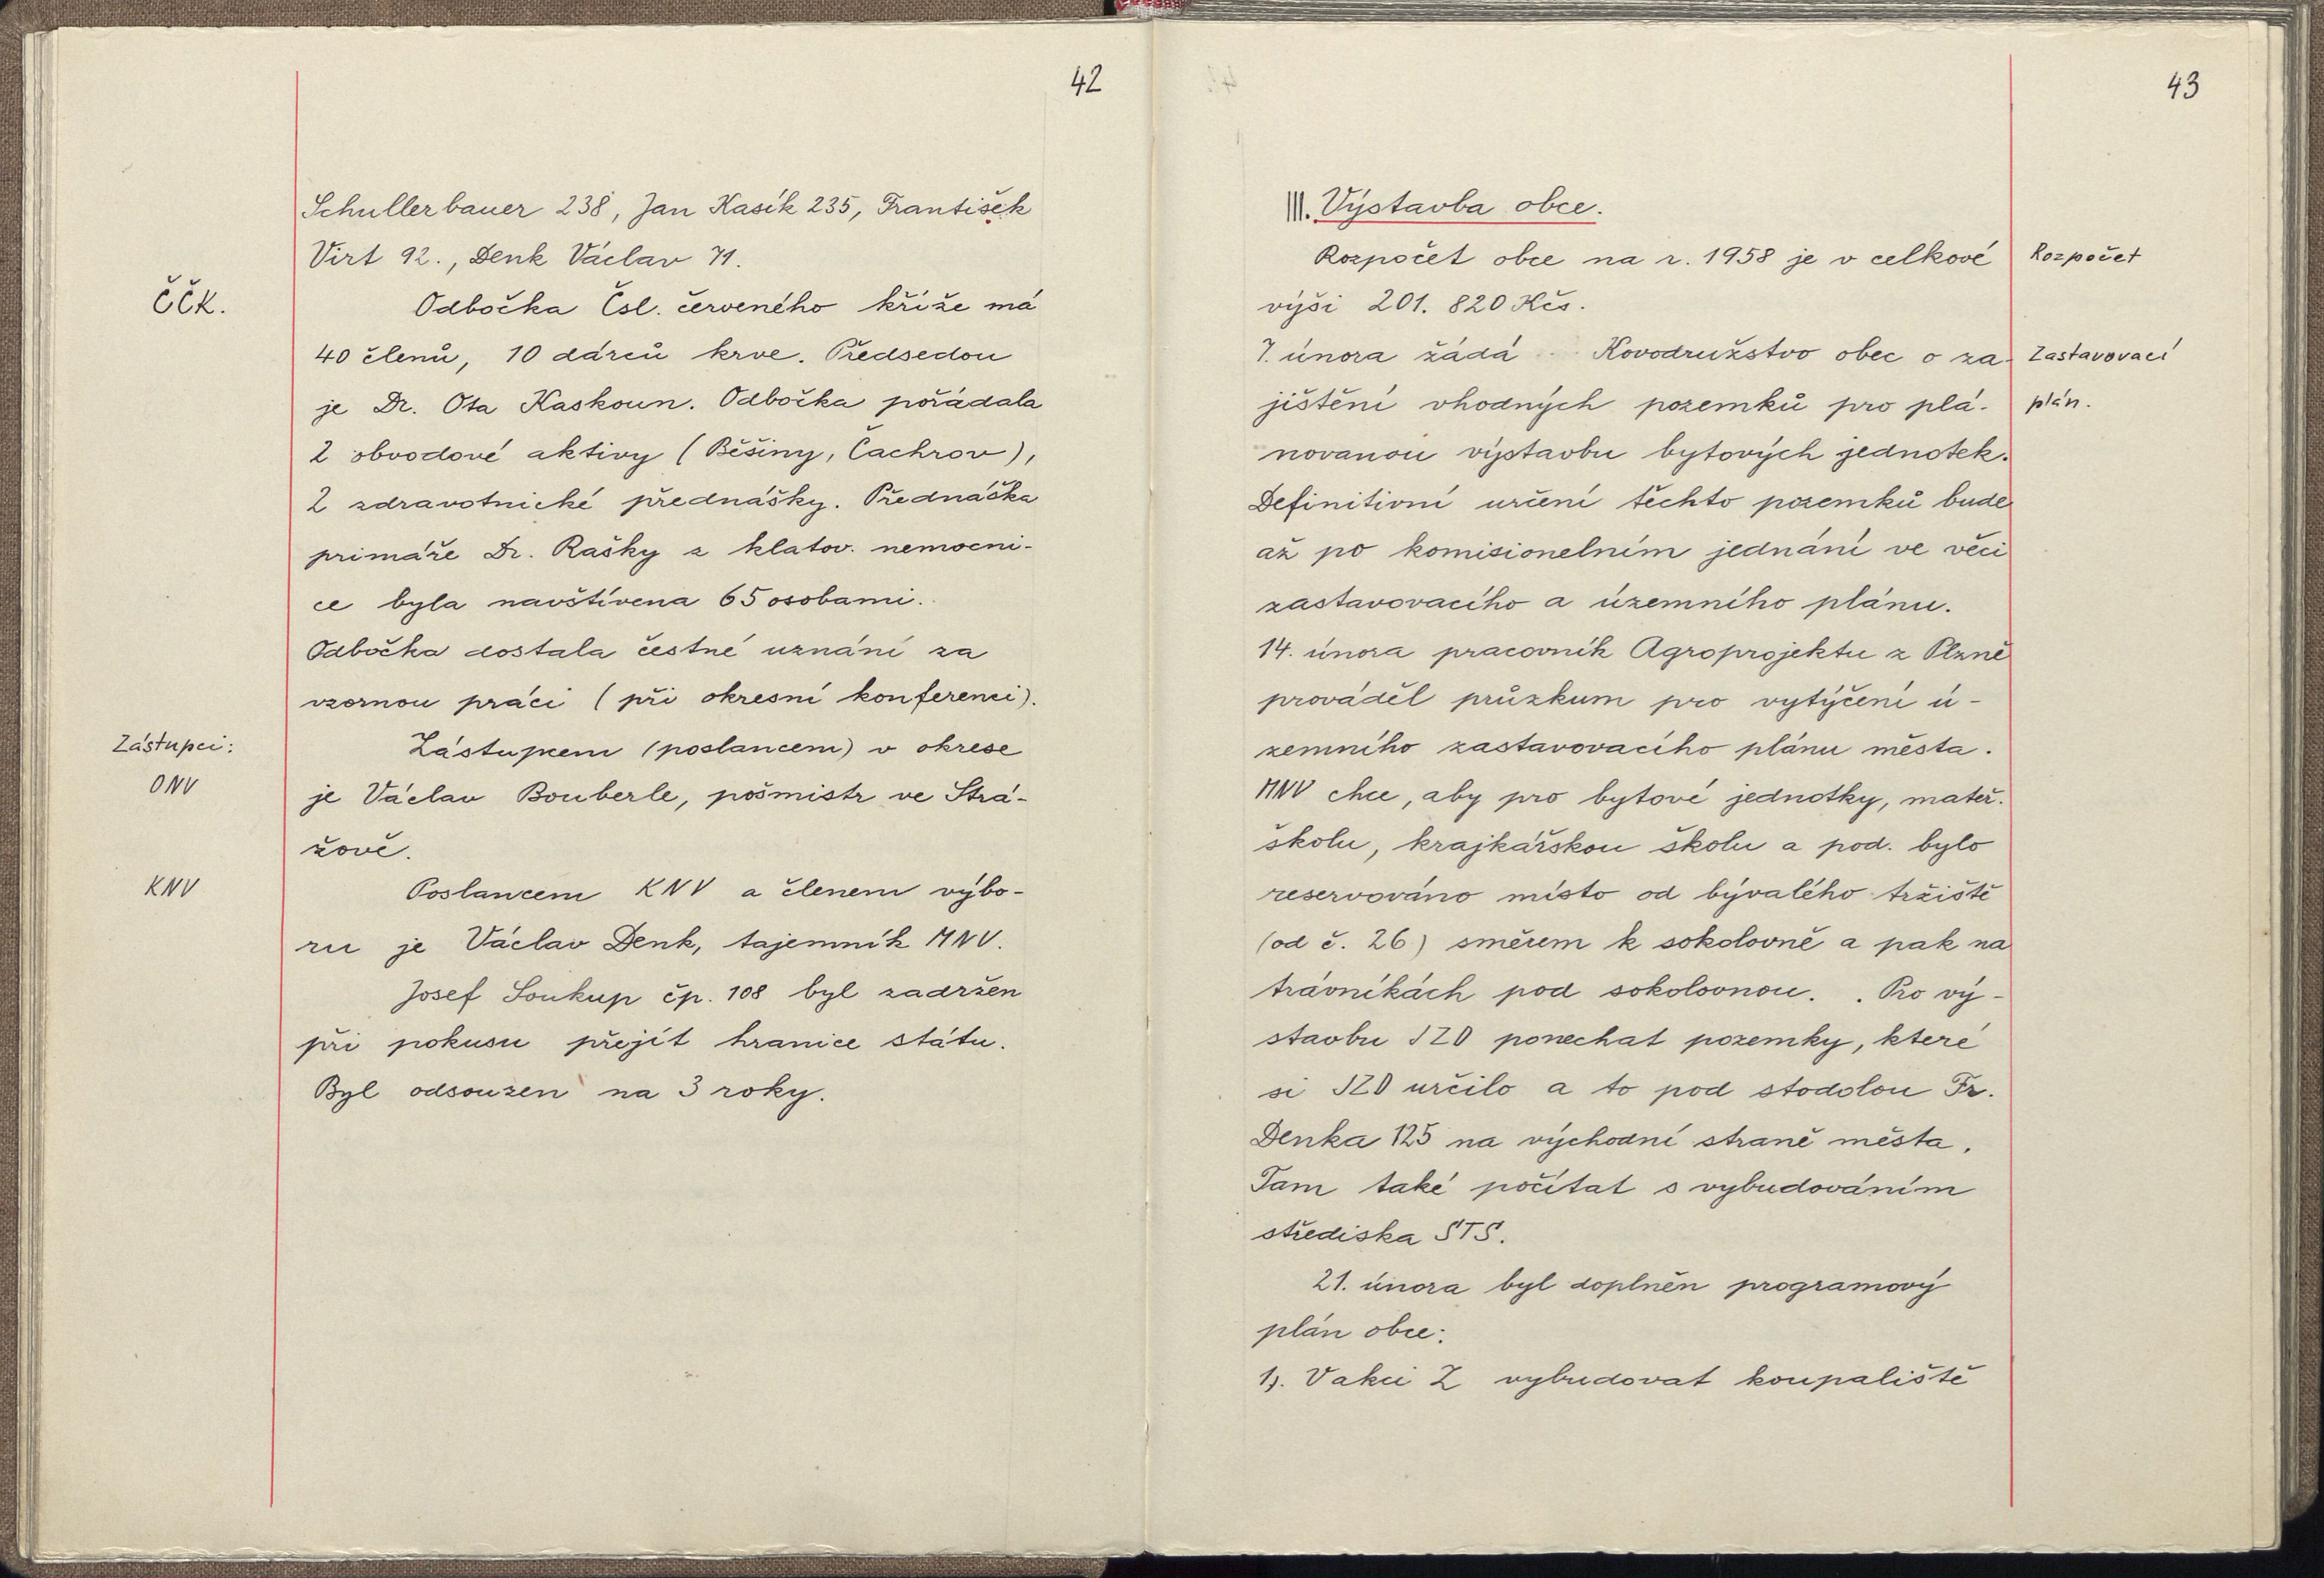 42
Schullerbauer 238, Jan Kasík 235, František
Virt 92., Denk Václav 71.
ČČK.
Odbočka Čsl. červeného kříže má
40 členů, 10 dárců krve. Předsedou
je Dr. Ota Kaskoun. Odbočka pořádala
2 obvodové aktivy (Běšiny, Čachrov),
2 zdravotnické přednášky. Přednáška
primáře Dr. Rašky z klatov. nemocni-
ce byla navštívena 65 osobami.
Odbočka dostala čestné uznání za
vzornou práci (při okresní konferenci).
Zástupci:
Zástupcem (poslancem) v okrese
ONV
je Václav Bouberle, pošmistr ve Strá-
žově.
KNV
Poslancem KNV a členem výbo-
ru je Václav Denk, tajemník MNV.
Josef Soukup čp. 108 byl zadržen
při pokusu přejít hranice státu.
Byl odsouzen na 3 roky.
43
III. Výstavba obce.
Rozpočet obce na r. 1958 je v celkové
Rozpočet
výši 201.820 Kčs.
7. února žádá Kovodružstvo obec o za-
Zastavovací
jištění vhodných pozemků pro plá-
plán.
novanou výstavbu bytových jednotek.
Definitivní určení těchto pozemků bude
až po komisionelním jednání ve věci
zastavovacího a územního plánu.
14. února pracovník Agroprojektu z Plzně
prováděl průzkum pro vytýčení ú-
zemního zastavovacího plánu města.
MNV chce, aby pro bytové jednotky, mateř.
školu, krajkářskou školu a pod. bylo
reservováno místo od bývalého tržiště
(od č. 26) směrem k sokolovně a pak na
trávníkách pod sokolovnou. . Pro vý-
stavbu JZD ponechat pozemky, které
si JZD určilo a to pod stodolou Fr.
Denka 125 na východní straně města.
Tam také počítat s vybudováním
střediska STS.
21. února byl doplněn programový
plán obce:
1). V akci Z vybudovat koupaliště